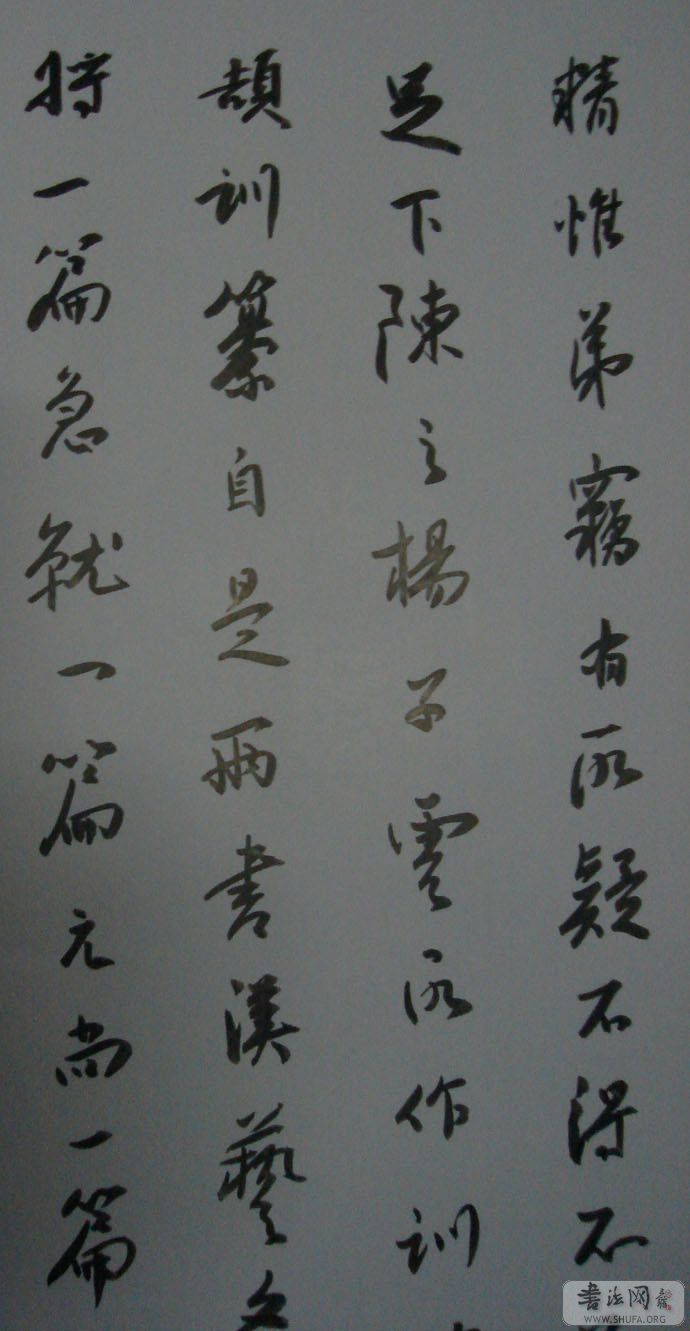 精惟弟竊有所疑不得不
足下陳之楊子雲所作訓
頡訓纂自是兩書漢藝文
將一篇急就一篇元尚一篇
書法网
WWW.SHUFA.ORG